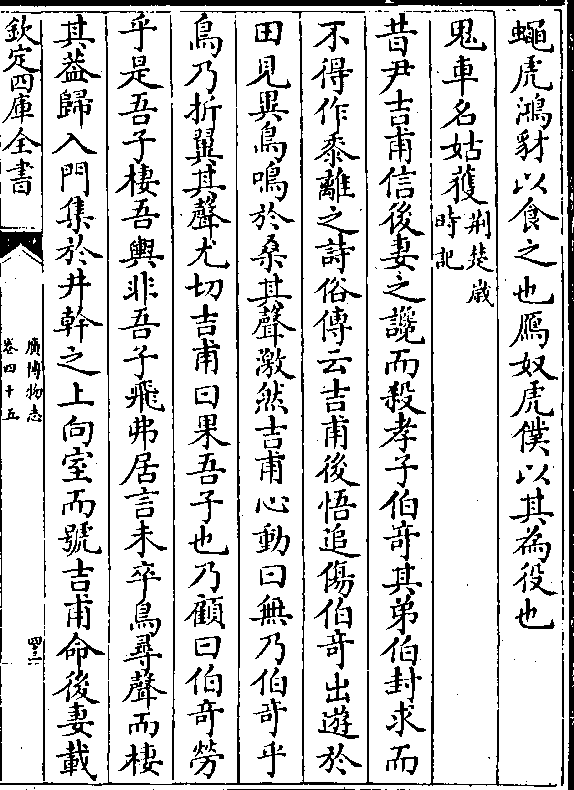 蠅虎鴻豺以食之也鴈奴虎僕以其為役也
鬼車名姑䧲荆楚歲
時記
昔尹吉甫信後妻之讒而殺孝子伯竒其弟伯封求而
不得作黍離之詩俗傳云吉甫後悟追傷伯竒出遊於
田見異鳥鳴於桑其聲激然吉甫心動曰無乃伯竒乎
鳥乃折翼其聲尤切吉甫曰果吾子也乃顧曰伯竒勞
乎是吾子棲吾輿非吾子飛弗居言未卒鳥尋聲而棲
其葢歸入門集於井幹之上向室而號吉甫命後妻載
欽定四庫全書
廣博物志
卷四十五